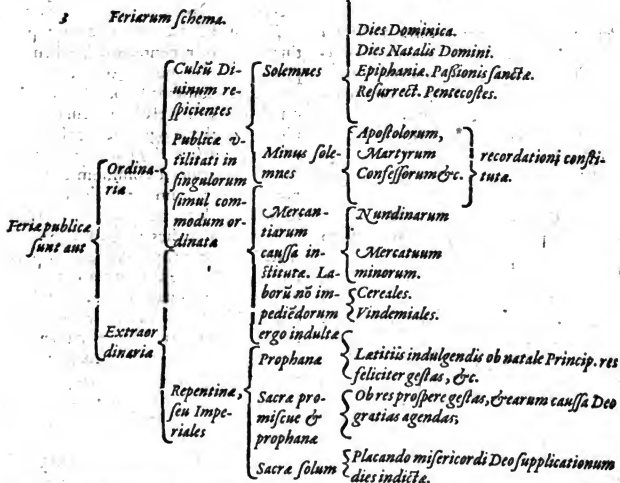 3 Feriarum ſchema.
Feriæ publicæ
ſunt aut
Ordina-
riæ
Extraor
dinaria
Cultū Di-
uinum re-
ſpicientes
Publicæ v-
tilitati in
ſingulorum
ſimul com-
modum or-
dinatæ
Repentinæ,
ſeu Impe-
riales
Solemnes
Minus ſole-
mnes
Mercan-
tiarum
cauſſa in-
ſtitutæ. La-
borū nō im-
pediēdorum
ergo indultæ
Prophanæ
Sacræ pro-
miſcue &
prophanæ
Sacræ ſolum
Dies Dominica.
Dies Natalis Domini.
Epiphaniæ. Paſsionis ſanctæ.
Reſurrect. Pentecoſtes.
Apoſtolorum,
Martyrum
Confeſſorum &c.
recordationi conſti-
tutæ.
Nundinarum
Mercatuum
minorum.
Cereales.
Vindemiales.
Lætitiis indulgendis ob natale Princip. res
feliciter geſtas, &c.
Ob res proſpere geſtas, & earum cauſſa Deo
gratias agendas;
Placando miſericordi Deo ſupplicationum
dies indictæ.